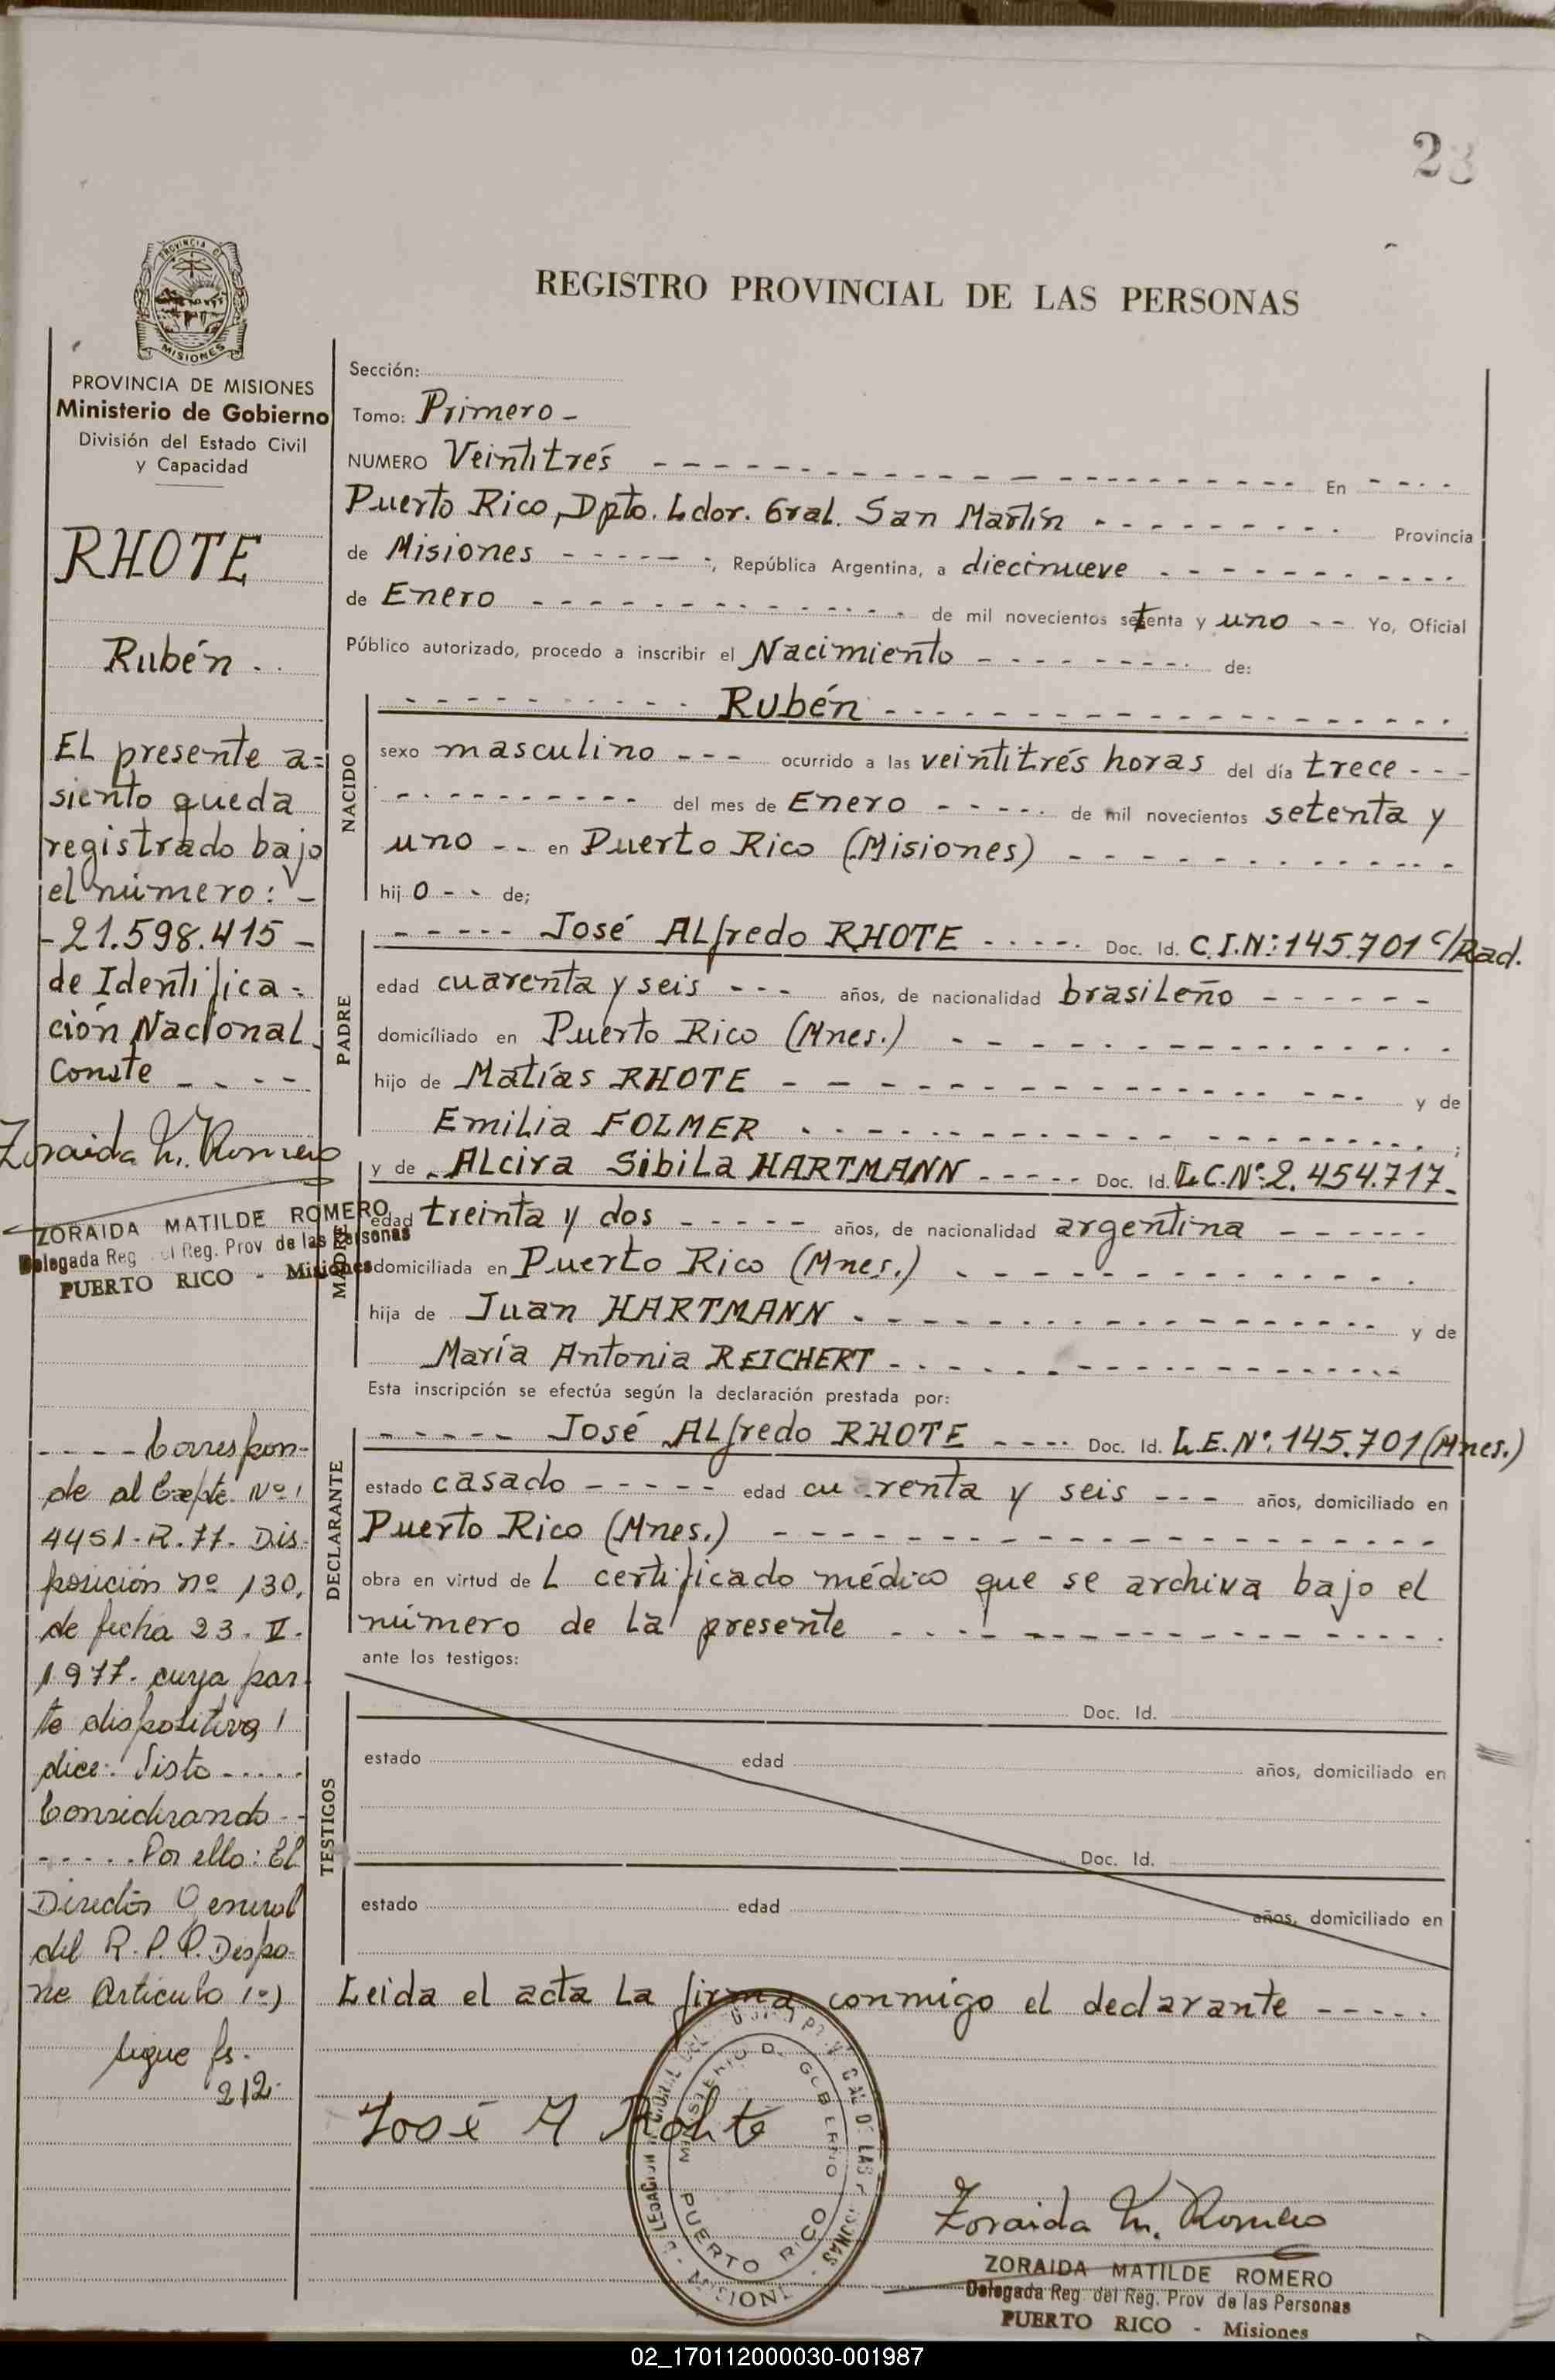 23
PROVINCIA DE MISIONES
Ministerio de Gobierno
División del Estado Civil
y Capacidad
RHOTE
Rubén
El presente a=
siento queda
registrado bajo
el número: -
-21.598.415-
de Identifica-
ción Nacional.
Conste - - - -
Zoraida M. Romero
ZORAIDA MATILDE ROMERO
Delegada Reg. del Reg. Prov de las Personas
PUERTO RICO - Misiones
- - - - Correspon-
de al Expte. Nº
4451-R-77- Dis-
posición nº 130,
de fecha 23-II-
1977- cuya par-
te dispositiva
dice: Visto - - - - -
Considerando - -
- - - - - Por ello: El
Director General
del R. P. P. Dispo-
ne Artículo 1º)
sigue fs.
212-
REGISTRO PROVINCIAL DE LAS PERSONAS
Sección:
Tomo: Primero -
NUMERO Veintitrés - - - - En - - - -
Puerto Rico, Dpto. Ldor. Gral. San Martín - - - - Provincia
de Misiones - - - -, República Argentina, a diecinueve - - - -
de Enero - - - - de mil novecientos setenta y uno - - Yo, Oficial
Público autorizado, procedo a inscribir el Nacimiento - - - - de:
NACIDO
- - - - Rubén - - - -
sexo masculino - - - ocurrido a las veintitrés horas del día trece - - -
- - - - del mes de Enero - - - - de mil novecientos setenta y
uno - - en Puerto Rico (Misiones) - - - -
hij o - - de;
PADRE
- - - - - José Alfredo RHOTE - - - - - Doc. Id. C.I.Nº:145.701 c/Rad.
edad cuarenta y seis - - - años, de nacionalidad brasileño - - - - - -
domicíliado en Puerto Rico (Mnes.) - - - -
hijo de Matías RHOTE - - - - y de
Emilia FOLMER - - - - ;
MADRE
y de Alcira Sibila HARTMANN - - - - - Doc. Id. L.C.Nº:2.454.717-
edad treinta y dos - - - - - años, de nacionalidad argentina - - - - - -
domiciliada en Puerto Rico (Mnes.) - - - -
hija de Juan HARTMANN - - - - y de
María Antonia REICHERT - - - -
Esta inscripción se efectúa según la declaración prestada por:
DECLARANTE
- - - - - José Alfredo RHOTE - - - - Doc. Id. L.E.Nº:145.701 (Mnes.)
estado casado - - - - - edad cuarenta y seis - - - años, domiciliado en
Puerto Rico (Mnes.) - - - -
obra en virtud de L certificado médico que se archiva bajo el
número de la presente - - - -
ante los testigos:
TESTIGOS
Doc. Id.
estado edad años, domiciliado en
Doc. Id.
estado edad años, domiciliado en
Leida el acta la firma conmigo el declarante - - - - -
José A Rohte
MINISTERIO DE GOBIERNO
PUERTO RICO
Zoraida M. Romero
ZORAIDA MATILDE ROMERO
Delegada Reg. del Reg. Prov de las Personas
PUERTO RICO - Misiones
02_170112000030-001987